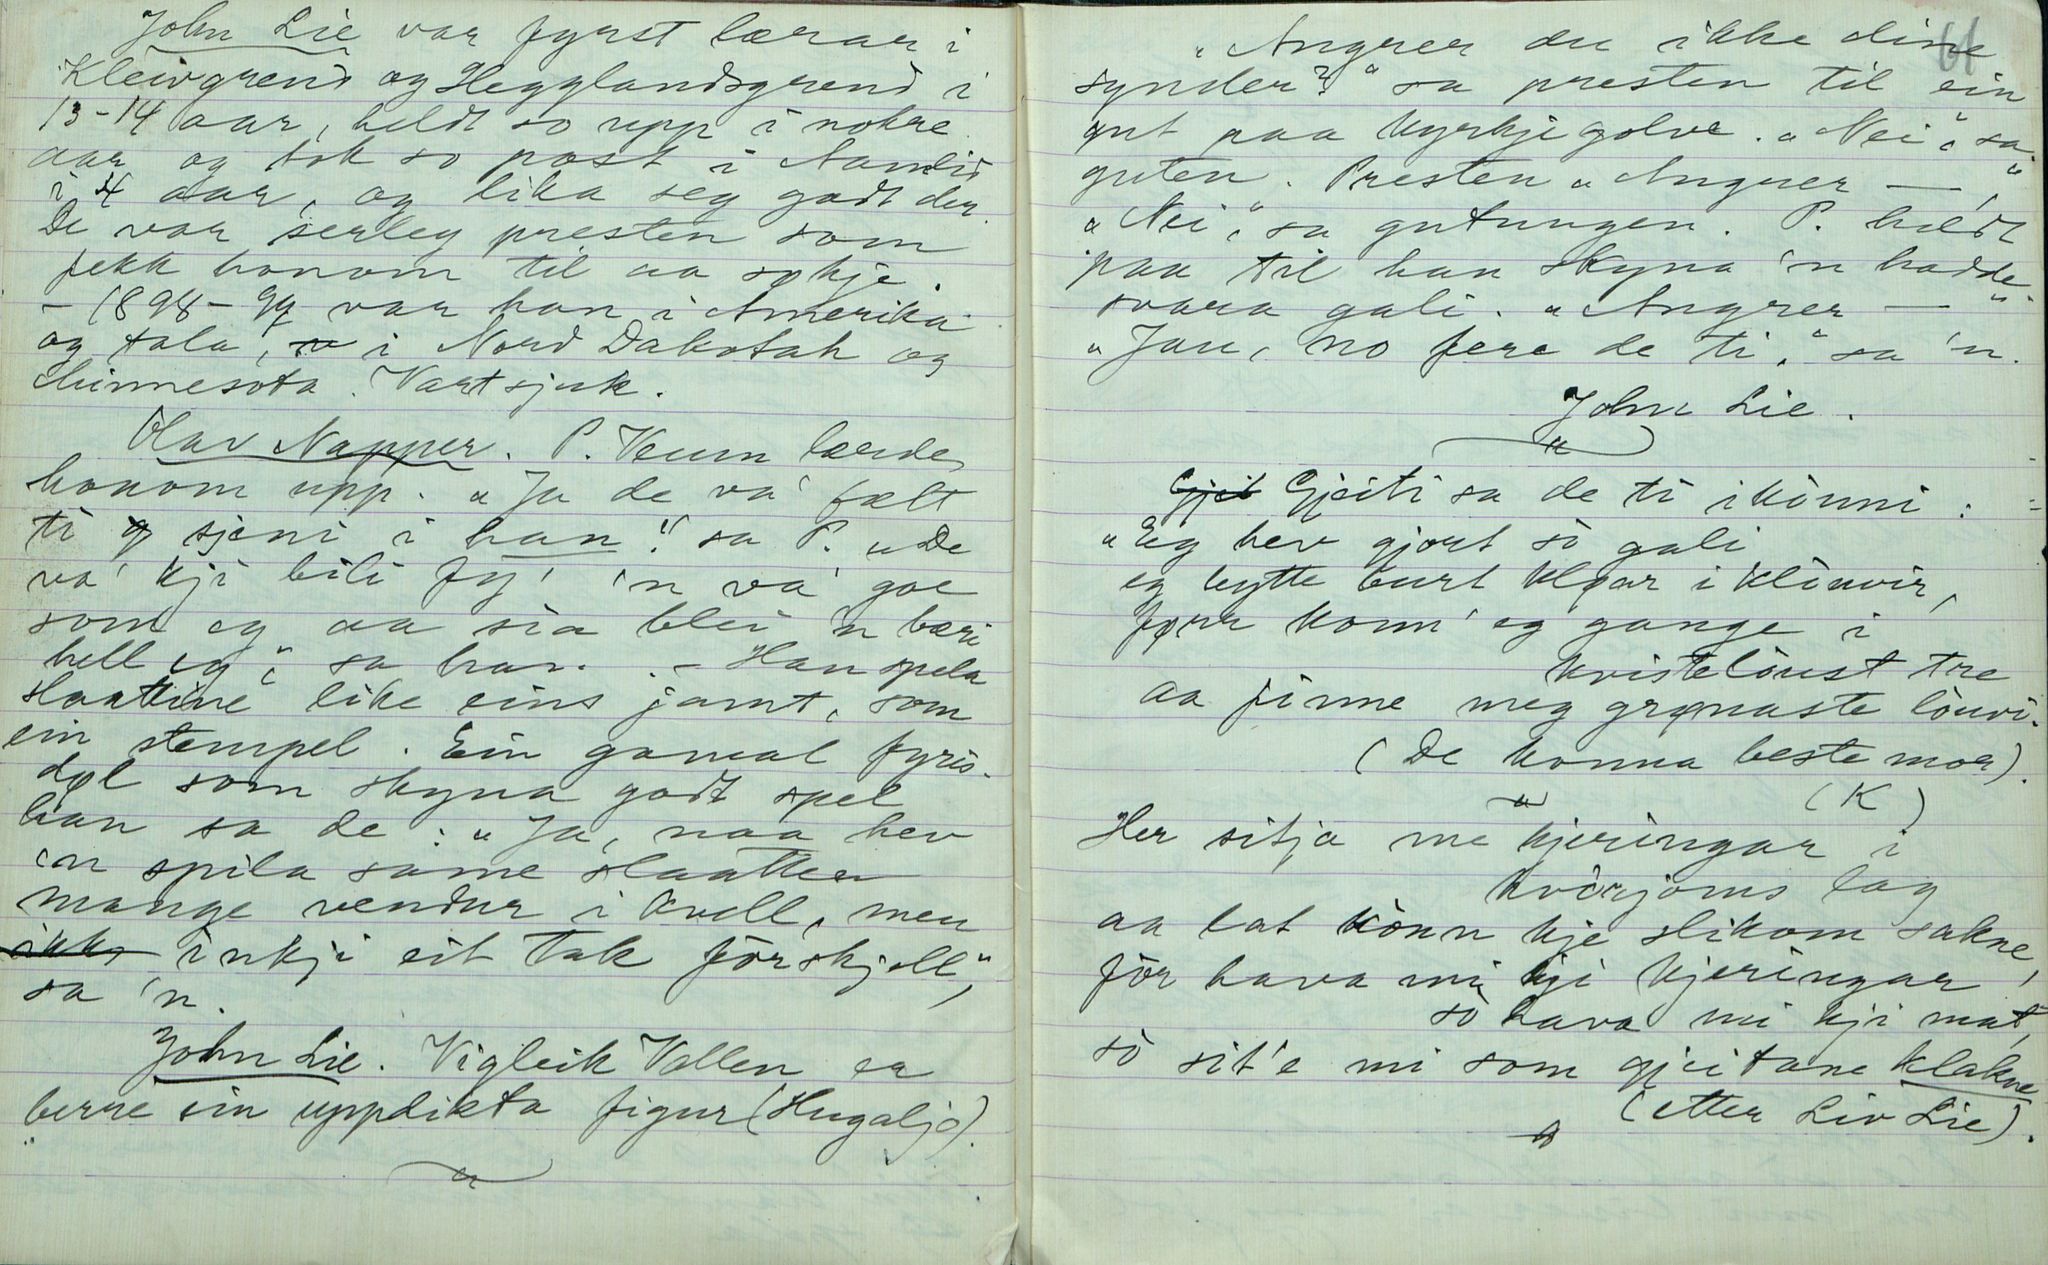 John Lie var fyrst lærar i
Kleivgrend og Hegglandsgrend i
13-14 aar, heldt so upp i nokre
aar og tok so post i Namlid
i 4 aar, og lika seg godt der.
De var serleg presten som
fekk honom til aa sökje.
- 1898-99 var han i Amerika
og tala, i Nord Dakotah og
Minnesota. Vart sjuk.
Olav Napper. P. Veum lærde
honom upp. "Ja de va' fælt
ti sjeni i han!" sa P. "De
va' kji bili fyr 'n va' goe
som eg aa sia blei 'n bæri
hell eg", sa han. - Han spela
slaattine like eins jamt, som
ein stempel. Ein gamal fyris-
døl som skyna godt spel
han sa de: "Ja, naa hev
'n spila same slaatten
mange vendur i kvell, men
ikkj inkji eit takförskjell",
sa 'n.
John Lie. Vigleik Vallen er
berre ein uppdikta figur (Hugaljo).
61
"Angrer du ikke dine
synder?" sa presten til ein
gut paa kyrkjegolve. "Nei", sa
guten. Presten "Angrer —"
"Nei", sa gutungen. P. heldt
paa til han skyna 'n hadde
svara gali. "Angrer —"
"Jau, no fere de ti," sa 'n.
John Lie.
Gjeit Gjeiti sa de ti ikönni:
"Eg hev gjort so gali
eg bytte burt kløar i klauvir,
fyrr konn' eg gange i
kvistelöust tre
aa finne meg grønaste löuvi.
(De konna bestemor).
(K)
Her sitja me kjeringar i
kvörjoms lag
aa lat könn kje slikom sakne,
för hava mi kji kjeringar,
so hava mi kji mat,
so sit'e mi som gjeitane klakne
(etter Liv Lie).